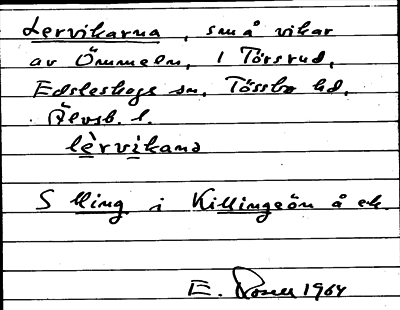 Lervikarna, små vikar
av Ömmeln, 1 Törsrud,
Edsleskogs sn, Tössbo hd,
Älvsb. l.
lèrvikana
S lling i Killingeön å ek.
E. Rosell 1964